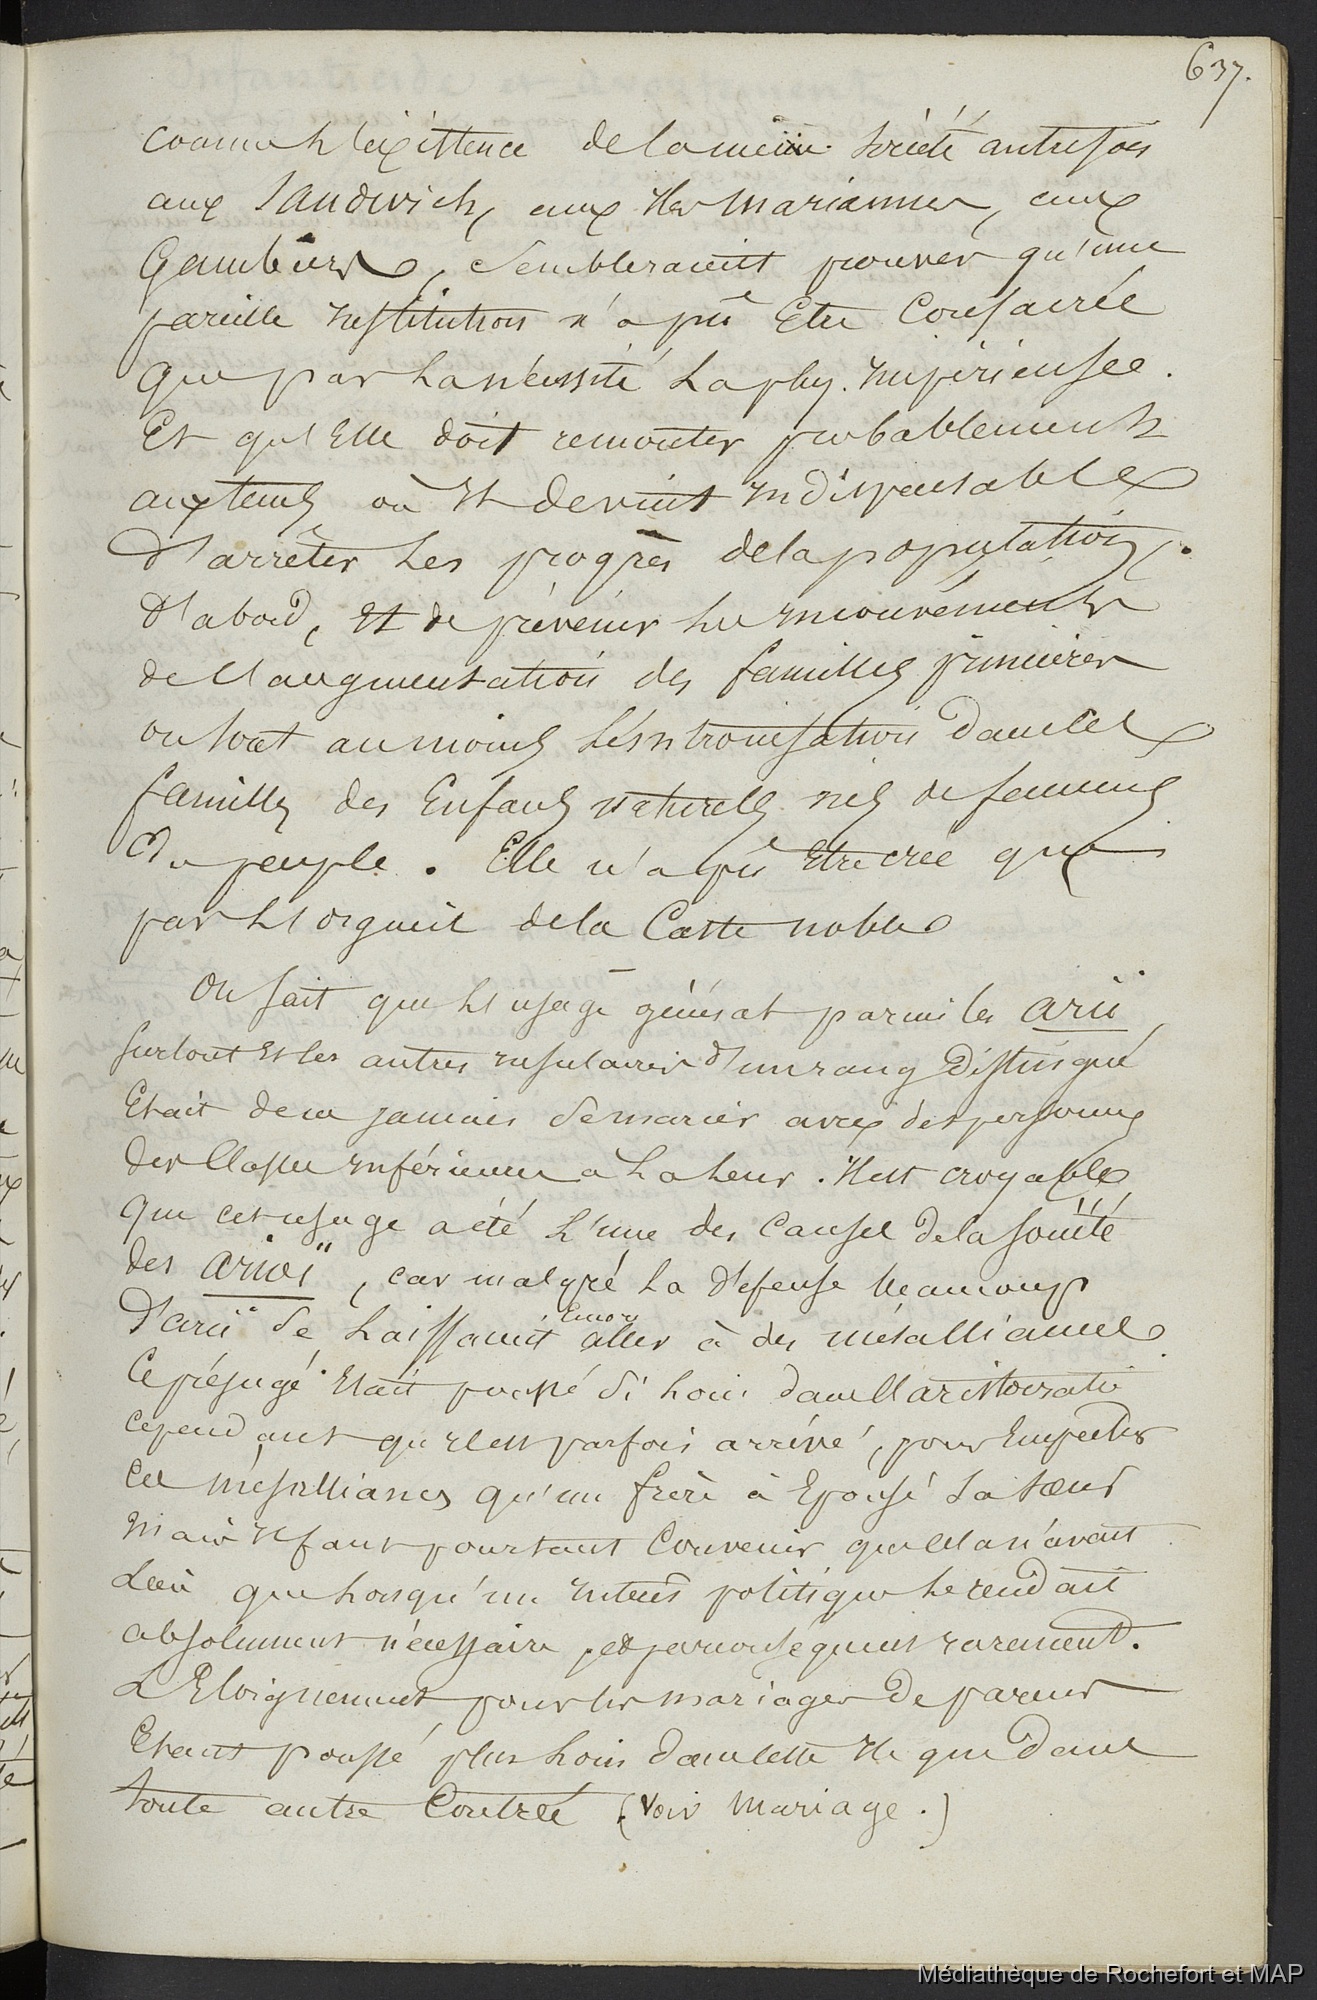 637.
comme l'existence de la même société autrefois
aux Sandwich, aux Iles Mariannes, aux
Gambiers, sembleraient prouver qu'une
pareille institution n'a pû être consacrée
que par la nécessité la plus impérieuse.
Et qu'elle doit remonter probablement
aux tems où il devint indispensable
d'arrêter les progrès de la population,
d'abord, et de prévenir les
de l'augmentation des familles princières
ou tout au moins l'intronisation dans les
familles des enfans naturels nés de femmes
du peuple. Elle n'a pû être créé que
par l'orgueil de la Caste noble
On sait que l'usage général parmi les arii,
surtout et les autres insulaires d'un rang distingué
était de ne jamais se marier avec des personnes
des classes inférieures à la leur. Il est croyable
que cet usage a été l'une des causes de la société
des arioï, car malgré la défense beaucoup
d'arii se laissaient encore aller à des mésalliances
Ce préjugé était poussé si loin dans l'aristocratie
cependant qu'il est parfois arrivé, pour empêcher
ces mésalliances qu'un frère à épousé sa sœur
Mais il faut pourtant convenir que cela n'avait
lieu que lorsqu'un intérêt politique le rendait
absolument nécessaire, et par conséquent rarement.
L'Eloignement pour les mariages de parens
étant poussé plus loin dans cette Ile que dans
toute autre Contrée (Voir Mariage.)
Médiathèque de Rochefort et MAP